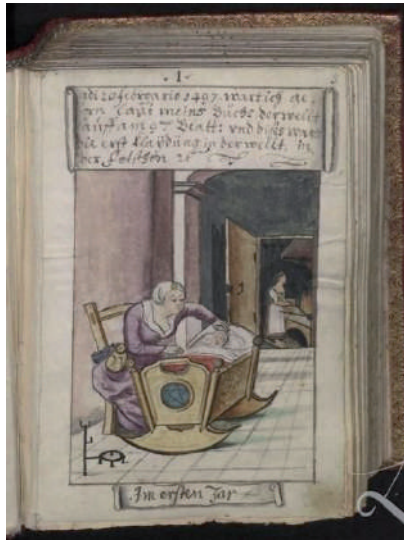 . 1 .
adi 20 febrario 1497. wart ich ge=
rn laut meins Buchs der wellt
auff am 9ten Blatt: vnd diss war
die erst klaydung in der wellt. In
der
Im ersten Jar